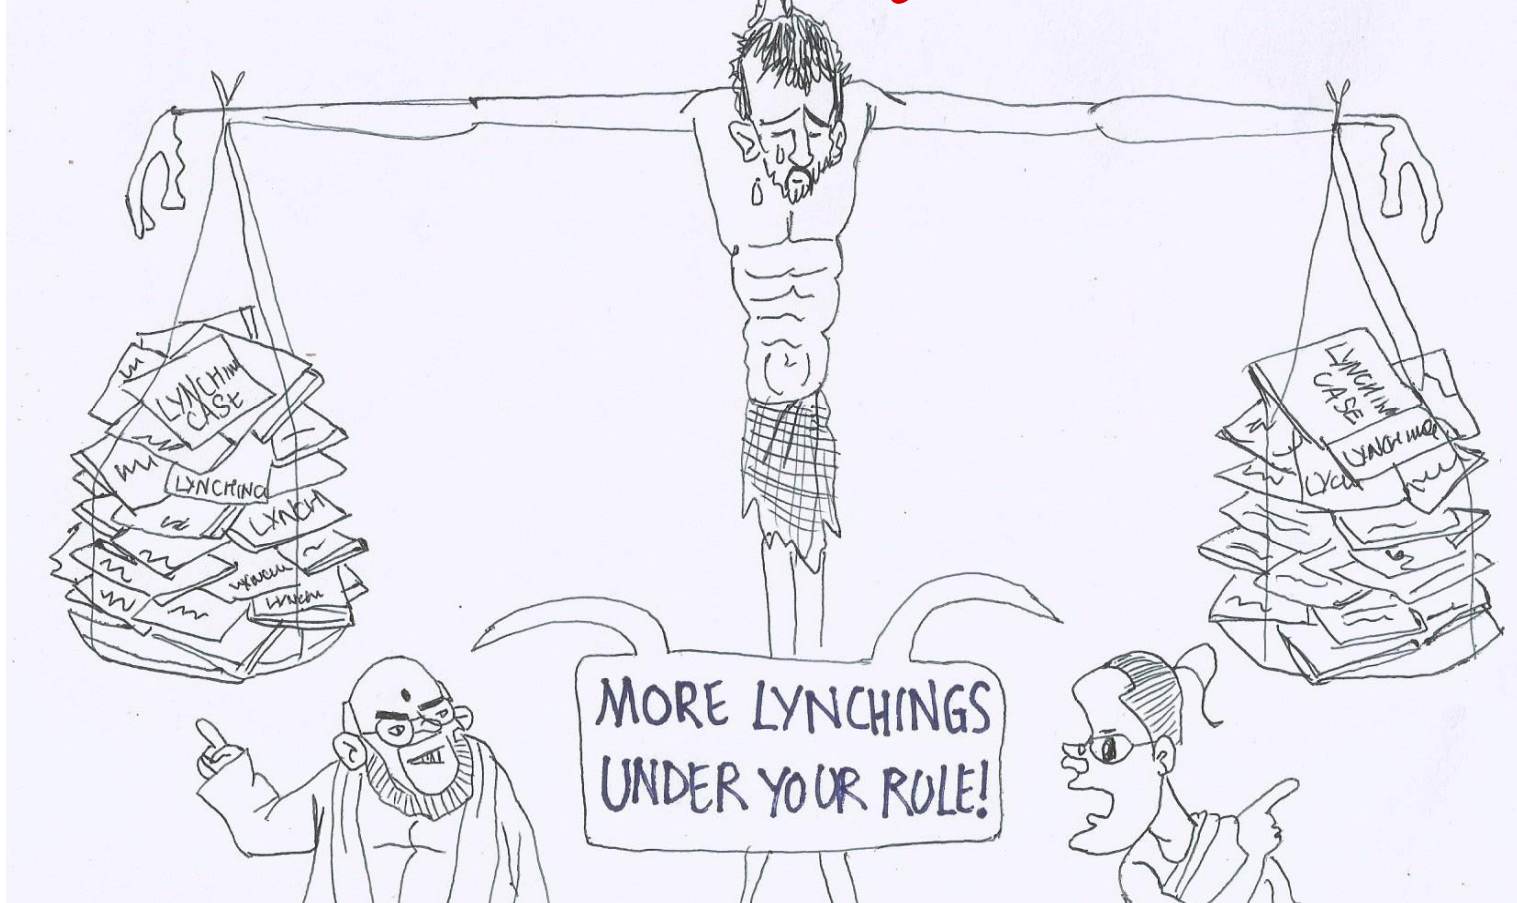 LYNCHING
CASE
LYNCHING
LYNCH
LYNCH
LYNCHING
CASE
LYNCHING
LYCH
MORE LYNCHINGS
UNDER YOUR RULE!